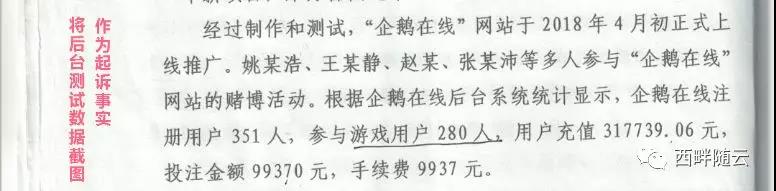 作为起诉事实
将后台测试数据截图
经过制作和测试，“企鹅在线”网站于 2018 年 4 月初正式上
线推广。姚某浩、王某静、赵某、张某沛等多人参与“企鹅在线”
网站的赌博活动。根据企鹅在线后台系统统计显示，企鹅在线注
册用户 351 人，参与游戏用户 280 人，用户充值 317739.06 元，
投注金额 99370 元，手续费 9937 元。
西畔随云